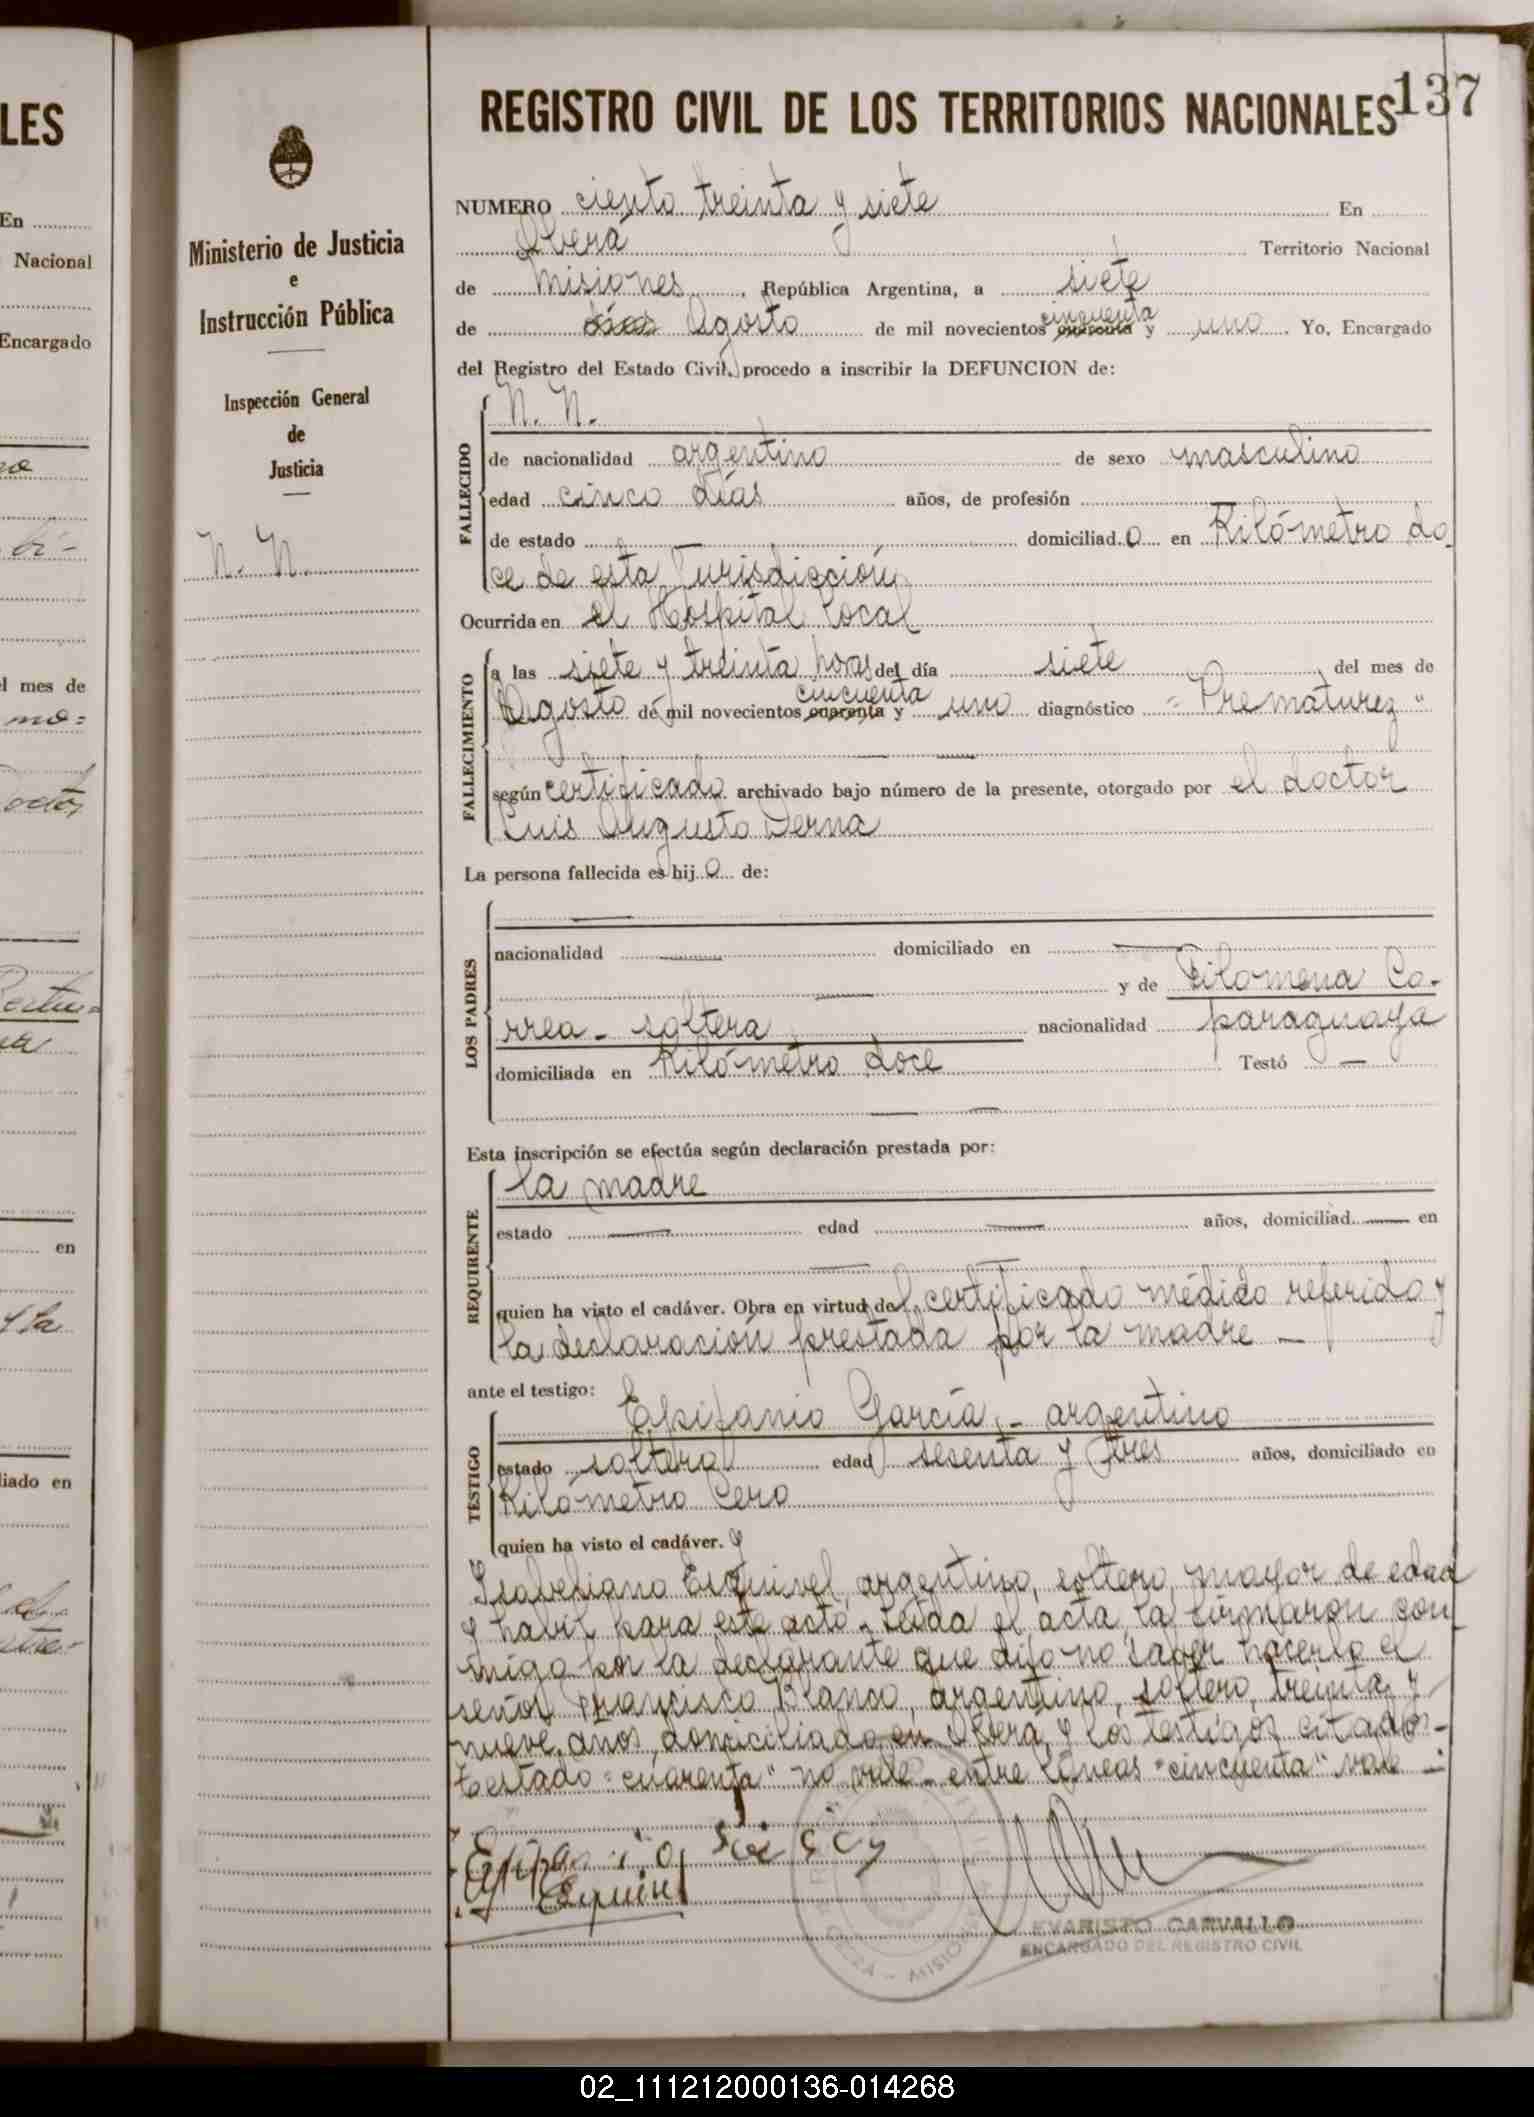 LES
En
Nacional
Encargado
bi-
l mes de
mo=
octor
en
y la
liado en
Ministerio de Justicia
e
Instrucción Pública
Inspección General
de
Justicia
N. N.
137
REGISTRO CIVIL DE LOS TERRITORIOS NACIONALES
NUMERO ciento treinta y siete En
Oberá Territorio Nacional
de Misiones, República Argentina, a siete
de Agosto de mil novecientos cuarenta cincuenta y uno. Yo, Encargado
del Registro del Estado Civil, procedo a inscribir la DEFUNCION de:
FALLECIDO
N. N.
de nacionalidad argentino de sexo masculino
edad cinco días años, de profesión
de estado — domiciliado en Kilómetro do
ce de esta Jurisdicción
Ocurrida en el Hospital local
FALLECIMIENTO
a las siete y treinta horas del día siete del mes de
Agosto de mil novecientos cuarenta cincuenta y uno diagnóstico "Prematurez"
según certificado archivado bajo número de la presente, otorgado por el doctor
Luis Augusto Derna
La persona fallecida es hijo de:
LOS PADRES
nacionalidad — domiciliado en —
— y de Filomena Co-
rrea - soltera nacionalidad paraguaya
domiciliada en Kilómetro doce Testó —
Esta inscripción se efectúa según declaración prestada por:
REQUIRENTE
la madre
estado — edad — años, domiciliad — en
quien ha visto el cadáver. Obra en virtud del certificado médico referido y
la declaración prestada por la madre —
ante el testigo:
TESTIGO
Epifanio García, - argentino
estado soltero edad sesenta y tres años, domiciliado en
Kilómetro Cero
quien ha visto el cadáver. y
Isabeliano Esquivel, argentino, soltero, mayor de edad
y habil para este acto. Leída el acta, la firmaron con
migo por la declarante que dijo no saber hacerlo el
señor Francisco Blanco, argentino, soltero, treinta y
nueve años, domiciliado en Oberá y los testigos citados-
testado "cuarenta" no vale - entre lineas "cincuenta" vale —
Esquivel
EVARISTO CARVALLO
ENCARGADO DEL REGISTRO CIVIL
02_111212000136-014268